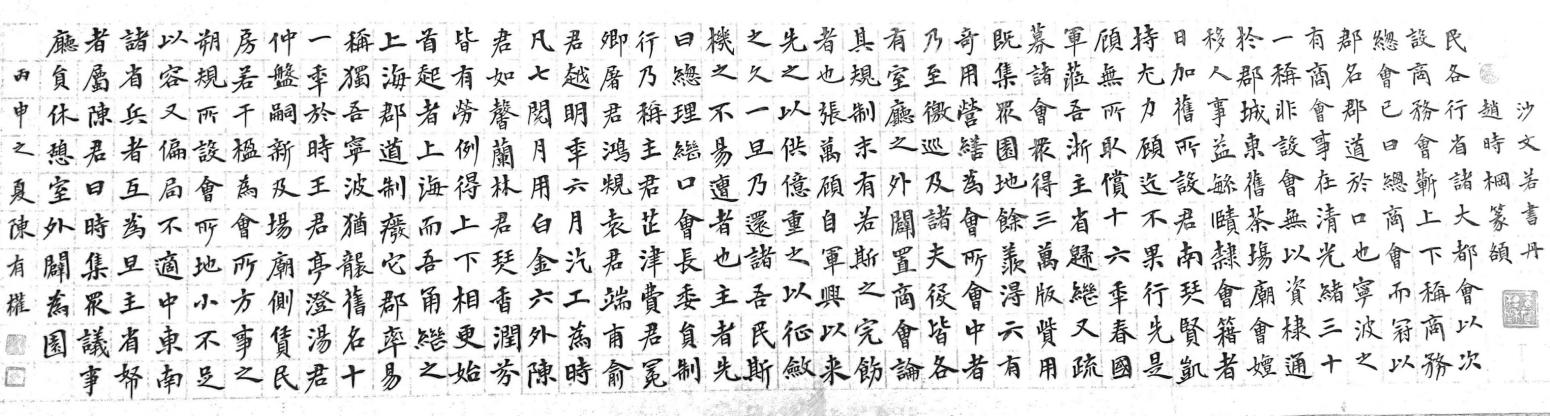 沙文若書丹
趙時棡篆額
民各行省諸大都會以次
設商務會蘄上下稱商務
總會已曰總商會而冠以
郡名郡道於口也寧波之
有商會事在清光緒三十
一稱非設會無以資棣通
於郡城東舊茶場廟會嬗
移人事益縣賾隸會籍者
日加舊所設君南琺賢凱
持尢力顧迄不果行先是
顧無所取償十六年春國
軍蒞吾浙主省歸繼又疏
募諸會眾得三萬版貲用
既集眾圍地餘羨得六有
奇用營繕為會所會中者
乃至徼巡及諸夫役皆各
有室廳之外闢置商會論
其規制未有若斯之完飭
者也張萬顧自軍興以来
先之以供億重之以征斂
之久一旦乃還諸吾民斯
機之不易邅者也主者先
曰總理繼口會長委負制
行乃稱主君芷津費君冕
卿屠君鴻規袁君端甫俞
君越明年六月汔工為時
凡七閱月用白金六外陳
君如馨蘭林君琺香潤芬
皆有勞例得上下相更始
首起者上海而吾甬繼之
上海郡道制廢它郡率易
稱獨吾寧波猶龍舊名十
一年於時王君亭澄湯君
仲盤嗣新及場廟側賃民
房若干楹為會所方事之
朔規所設會所地小不足
以容又偏局不適中東南
諸省兵者互為旦主省帑
者屬陳君曰時集眾議事
廳負休憩室外闢為園
丙申之夏陳有權